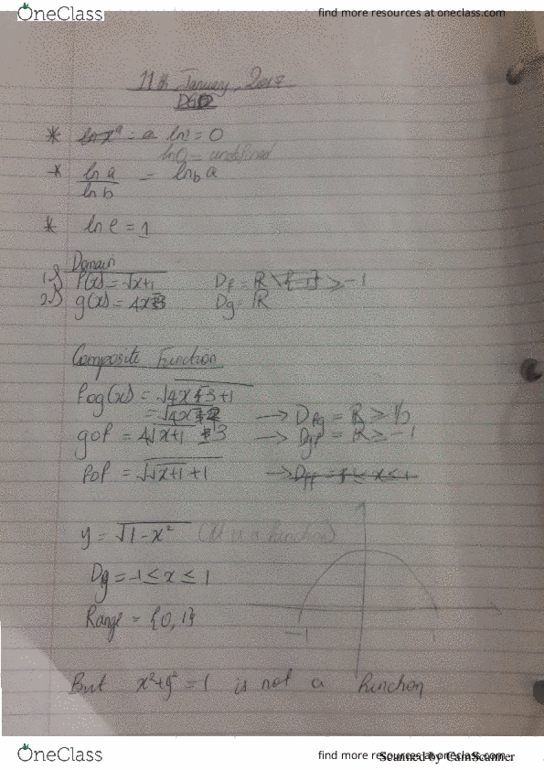 OneClass
find more resources at oneclass.com
11th January, 2018
DGD
* ln xᵃ = a ln 1 = 0
ln 0 = undefined
* ln a / ln b = ln_b a
* ln e = 1
Domain
1.) f(x) = √x+1 D_f = R \ {-1} ≥ -1
2.) g(x) = 4x-3 D_g = R
Composite Function
fog(x) = √4x-3+1
= √4x-2 → D_fg = R ≥ 1/2
gof = 4√x+1 - 3 → D_gf = R ≥ -1
fof = √√x+1 + 1
y = √1-x² (It is a function)
D_y = -1 ≤ x ≤ 1
Range = {0, 1}
-1
But x²+y² = 1 is not a function
OneClass
find more resources at oneclass.com
Scanned by CamScanner